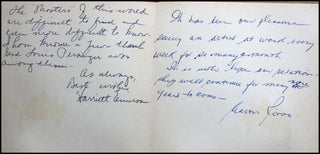 the Masters of this world
are difficult to find and
even more difficult to know.
I have known a few. Thank
God Louis is
among them.
As always,
Best wishes
Harriett
It has been our pleasure
seeing an artist at work every
week for so many a month
It is with hope our relation-
ship will continue for many more
years to come—
Aaron